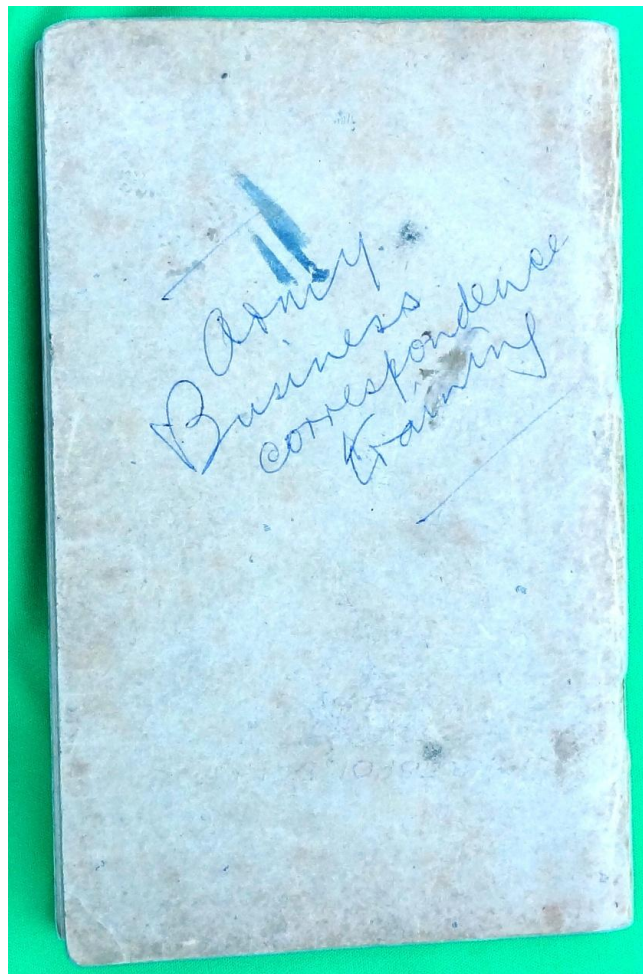 Army
Business
correspondence
training